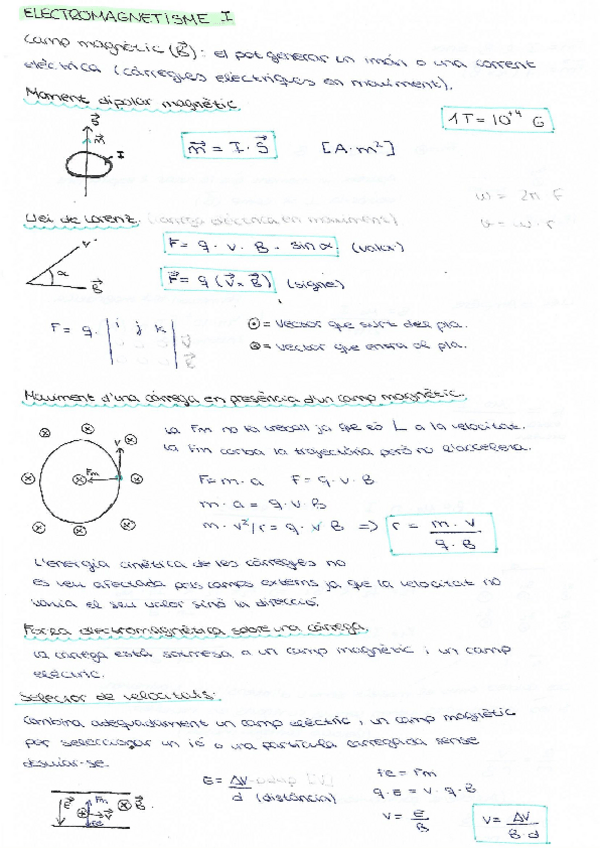 ELECTROMAGNETISME I
Camp magnètic (B⃗): el pot generar un imán o una corrent
elèctrica (càrregues elèctriques en moviment).
Moment dipolar magnètic
S⃗
m⃗
I
m⃗ = I · S⃗ [A·m²]
1T = 10⁺⁴ G
ω = 2π F
v = ω · r
Llei de Lorenz. (càrrega elèctrica en moviment)
v
α
B⃗
F = q · v · B · sin α (valor)
F⃗ = q (v⃗ x B⃗) (signe)
F = q · | i j k |
v⃗
B⃗
⊙ = vector que surt del pla.
⊗ = vector que entra al pla.
Moviment d'una càrrega en presència d'un camp magnètic.
La Fm no fa treball ja que és ⊥ a la velocitat.
La Fm corba la trajectòria però no l'accelera.
v
Fm
F = m · a F = q · v · B
m · a = q · v · B
m · v²/r = q · v · B => r = m · v / q · B
L'energia cinètica de les càrregues no
es veu afectada pels camps externs ja que la velocitat no
varia el seu valor sinó la direcció.
Força electromagnètica sobre una càrrega.
La càrrega està sotmesa a un camp magnètic i un camp
elèctric.
Selector de velocitats.
Combina adequadament un camp elèctric i un camp magnètic
per seleccionar un ió o una partícula carregada sense
desviar-se.
E⃗
Fm
v⃗
Fe
B⃗.
E = ΔV / d (distància)
Fe = Fm
q · E = v · q · B
v = E / B
v = ΔV / B · d